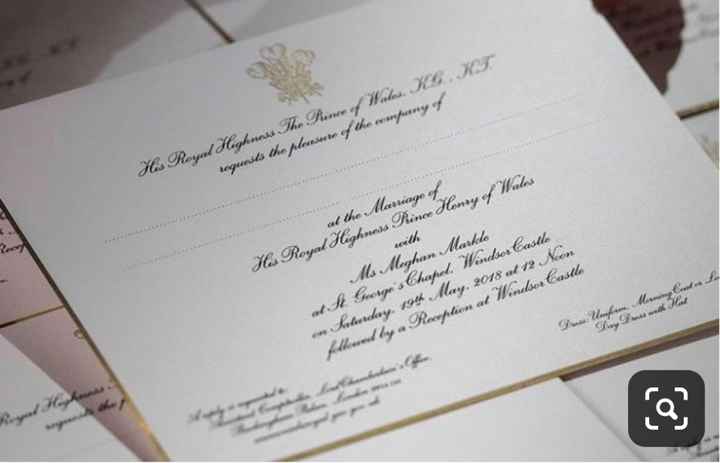 His Royal Highness The Prince of Wales, K.G., K.T.
requests the pleasure of the company of
at the Marriage of
His Royal Highness Prince Henry of Wales
with
Ms Meghan Markle
at St. George's Chapel, Windsor Castle
on Saturday, 19th May, 2018 at 12 Noon
followed by a Reception at Windsor Castle
Dress: Uniform, Morning Coat or
Day Dress with Hat
A reply is requested to:
Lord Chamberlain's Office,
Buckingham Palace, London
Royal Highness
requests the